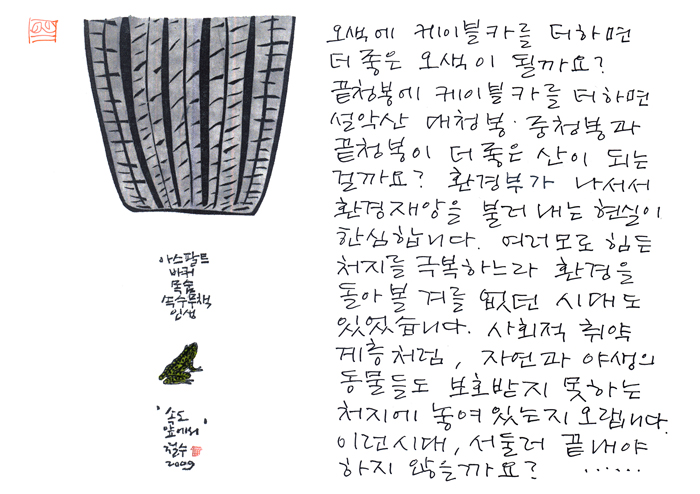 오색에 케이블카를 더하면
더 좋은 오색이 될까요?
끝청봉에 케이블카를 더하면
설악산 대청봉·중청봉과
끝청봉이 더 좋은 산이 되는
걸까요? 환경부가 나서서
환경재앙을 불러내는 현실이
한심합니다. 여러모로 힘든
처지를 극복하느라 환경을
돌아볼 겨를 없던 시대도
있었습니다. 사회적 취약
계층처럼, 자연과 야생의
동물들도 보호받지 못하는
처지에 놓여있는지 오랩니다.
이런시대, 서둘러 끝내야
하지 않을까요? ……
아스팔트
바퀴
목숨
속수무책
인생
'속도
앞에서'
철수
2009